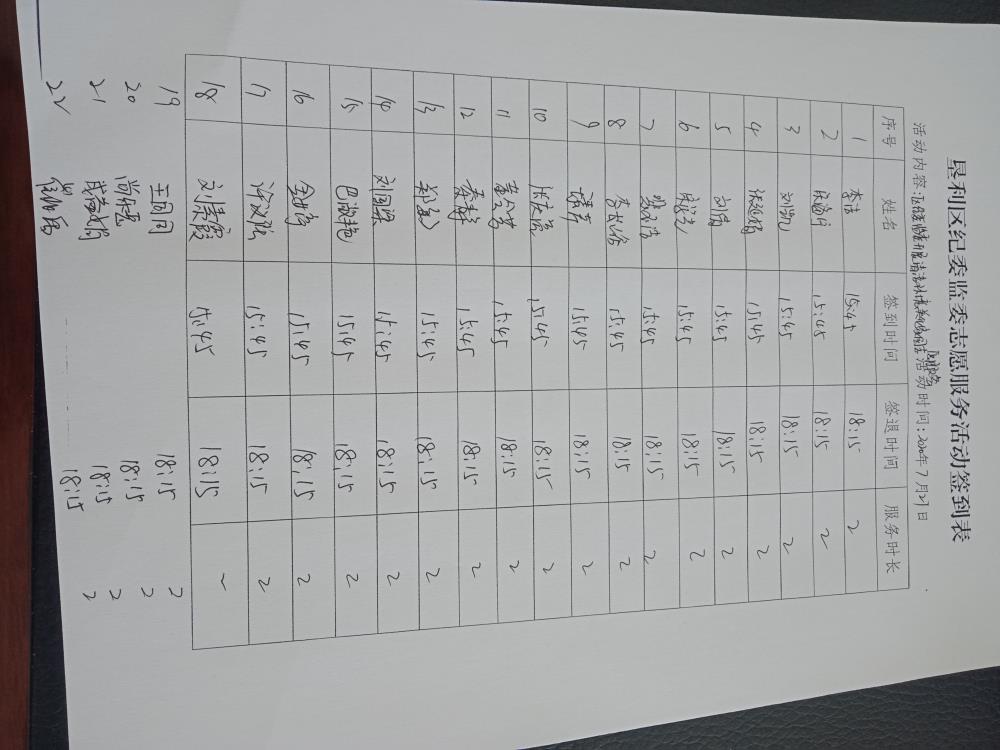 垦利区纪委监委志愿服务活动签到表
活动内容: 活动时间:2020年7月27日
序号 姓名 签到时间 签退时间 服务时长
1 李洁 15:45 18:15 2
2 15:45 18:15 2
3 刘凯 15:45 18:15 2
4 张延娟 15:45 18:15 2
5 15:45 18:15 2
6 15:45 18:15 2
7 15:45 18:15 2
8 李长伦 15:45 18:15 2
9 15:45 18:15 2
10 15:45 18:15 2
11 15:45 18:15 2
12 秦静 15:45 18:15 2
13 15:45 18:15 2
14 刘国梁 15:45 18:15 2
15 巴淑艳 15:45 18:15 2
16 15:45 18:15 2
17 15:45 18:15 2
18 刘景霞 15:45 18:15
19 王同同 18:15 2
20 尚乐恩 18:15 2
21 18:15 2
22 18:15 2